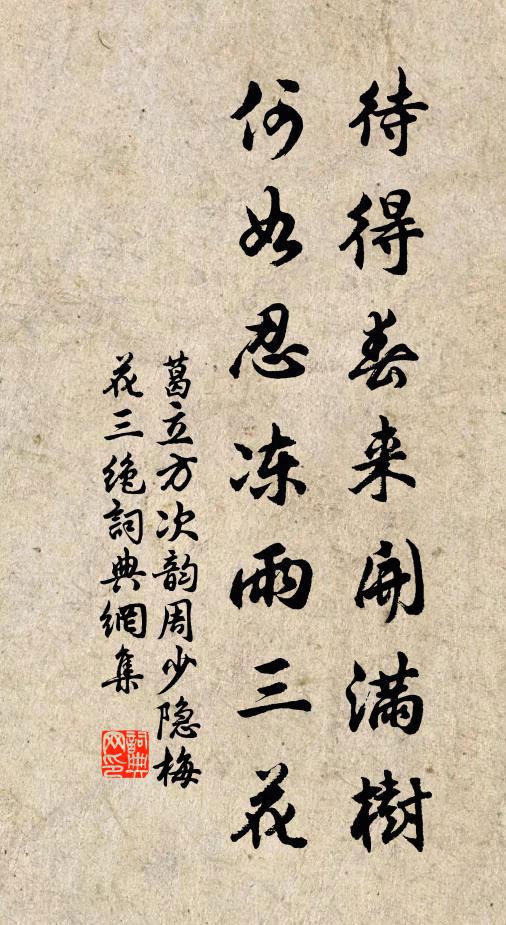 待得春来開滿樹
何如忍冻兩三花
葛立方次韵周少隐梅
花三绝詞典網集
詞典
网印